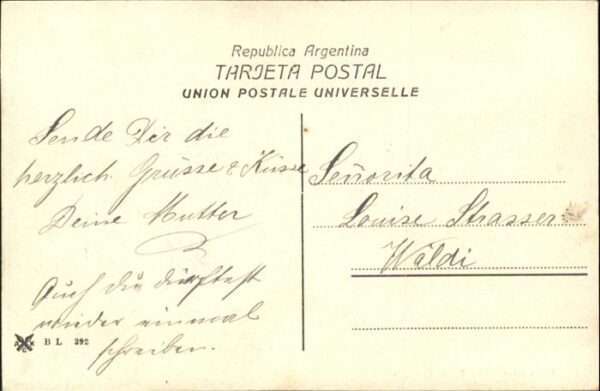 Republica Argentina
TARJETA POSTAL
UNION POSTALE UNIVERSELLE
Sende Dir die
herzlich Grüsse & Küsse
Deine Mutter
Auch du dürftest
wieder einmal
schreiben.
Señorita
Louise Strasser
Wäldi
BL 292